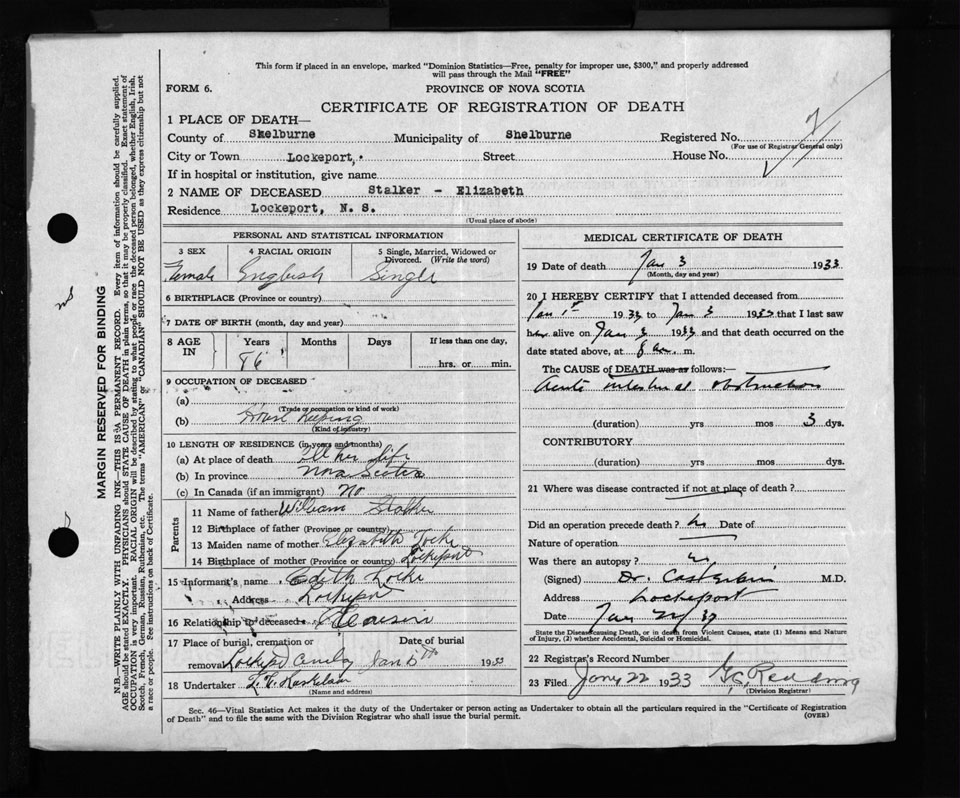 This form if placed in an envelope, marked "Dominion Statistics—Free, penalty for improper use, $300," and properly addressed
will pass through the Mail "FREE"
FORM 6.
PROVINCE OF NOVA SCOTIA
CERTIFICATE OF REGISTRATION OF DEATH
1 PLACE OF DEATH—
County of Shelburne Municipality of Shelburne Registered No.
(For use of Registrar General only)
City or Town Lockeport, Street House No.
If in hospital or institution, give name
2 NAME OF DECEASED Stalker - Elizabeth
Residence Lockeport, N. S.
(Usual place of abode)
PERSONAL AND STATISTICAL INFORMATION
3 SEX 4 RACIAL ORIGIN 5 Single, Married, Widowed or
Divorced. (Write the word)
Female English Single
6 BIRTHPLACE (Province or country)
7 DATE OF BIRTH (month, day and year)
8 AGE IN Years Months Days If less than one day,
86 hrs. or min.
9 OCCUPATION OF DECEASED
(a)
(Trade or occupation or kind of work)
(b) House Keeping
(Kind of industry)
10 LENGTH OF RESIDENCE (in years and months)
(a) At place of death All her life
(b) In province Nova Scotia
(c) In Canada (if an immigrant) No
Parents
11 Name of father William Stalker
12 Birthplace of father (Province or country)
13 Maiden name of mother Elizabeth Locke
14 Birthplace of mother (Province or country) Lockeport
15 Informant's name Edith Locke
Address Lockeport
16 Relationship to deceased Cousin
17 Place of burial, cremation or Date of burial
removal Lockeport Jan 1933
18 Undertaker
(Name and address)
MEDICAL CERTIFICATE OF DEATH
19 Date of death Jan 3 1933
(Month, day and year)
20 I HEREBY CERTIFY that I attended deceased from
Jan 1st 1933 to Jan 3 1933 that I last saw
her alive on Jan 3 1933 and that death occurred on
date stated above, at 8 am. m.
The CAUSE of DEATH was as follows:—
Acute intestinal obstruction
(duration) yrs mos 3 dys.
CONTRIBUTORY
(duration) yrs. mos dys.
21 Where was disease contracted if not at place of death?
Did an operation precede death? no Date of
Nature of operation
Was there an autopsy? no
(Signed) Dr. M.D.
Address Lockeport
Date Jan
State the Disease causing Death, or in death from Violent Causes, state (1) Means and Nature
of Injury, (2) whether Accidental, Suicidal or Homicidal.
22 Registrar's Record Number
23 Filed Jany 22 1933
(Division Registrar)
Sec. 46—Vital Statistics Act makes it the duty of the Undertaker or person acting as Undertaker to obtain all the particulars required in the "Certificate of Registration
of Death" and to file the same with the Division Registrar who shall issue the burial permit.
(OVER)
MARGIN RESERVED FOR BINDING
N.B.—WRITE PLAINLY WITH UNFADING INK—THIS IS A PERMANENT RECORD. Every item of information should be carefully supplied.
AGE should be stated EXACTLY. PHYSICIANS should STATE CAUSE OF DEATH in plain terms, so that it may be properly classified. Exact statement of
OCCUPATION is very important. RACIAL ORIGIN will be described by stating to what people or race the deceased person belonged, whether English, Irish,
Scotch, French, German, Russian, Ruthenian, etc. The terms "AMERICAN" or "CANADIAN" SHOULD NOT BE USED as they express citizenship but not
a race or people. See instructions on back of Certificate.